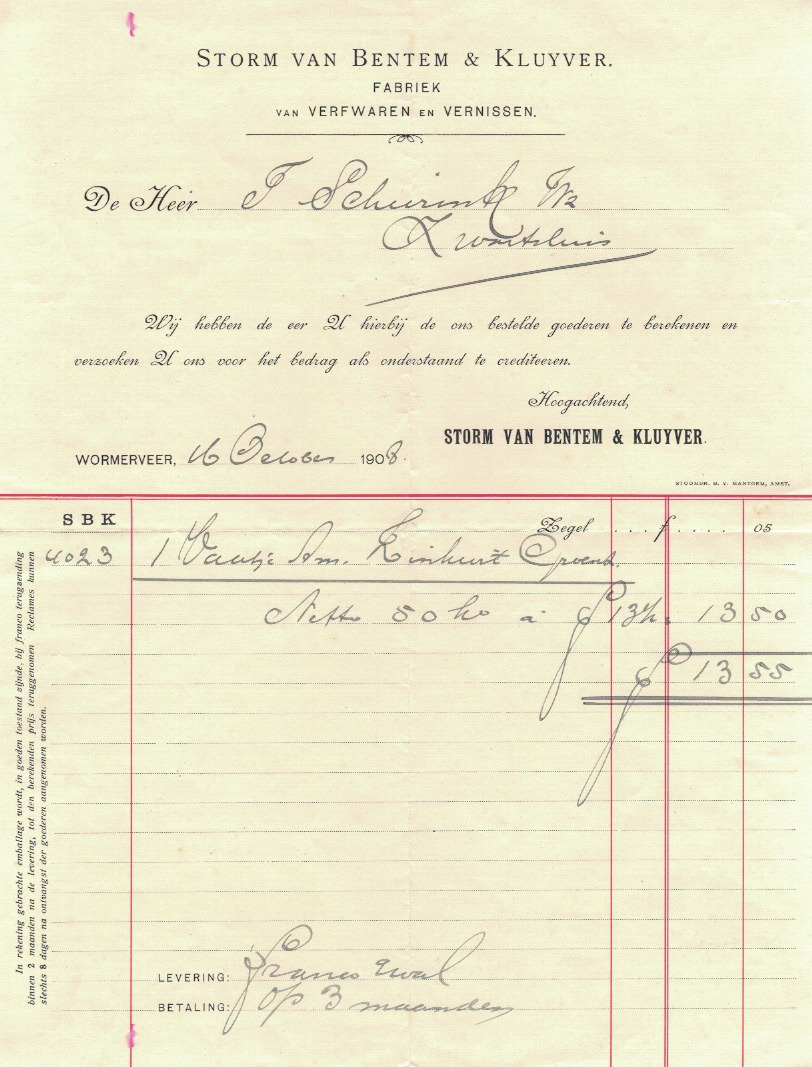 STORM VAN BENTEM & KLUYVER.
FABRIEK
VAN VERFWAREN EN VERNISSEN.
De Heer F Scheurink Wz
Zwartsluis
Wij hebben de eer U hierbij de ons bestelde goederen te berekenen en
verzoeken U ons voor het bedrag als onderstaand te crediteeren.
Hoogachtend,
STORM VAN BENTEM & KLUYVER.
WORMERVEER, 16 October 1908.
STOOMDR. B. V. MANTGEM, AMST.
SBK Zegel . . . f . . . . 05
4023 1 Vaatje Am. Zinkwit Groenz.
Netto 50 ko à f 13½ 13 50
f 13 55
LEVERING: franco wal
BETALING: op 3 maanden
In rekening gebrachte emballage wordt, in goeden toestand zijnde, bij franco terugzending
binnen 2 maanden na de levering, tot den berekenden prijs teruggenomen Reclames kunnen
slechts 8 dagen na ontvangst der goederen aangenomen worden.